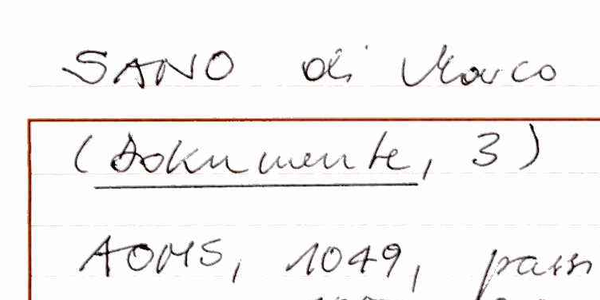 SANO di Marco
(Dokumente, 3)
AOMS, 1049, pass